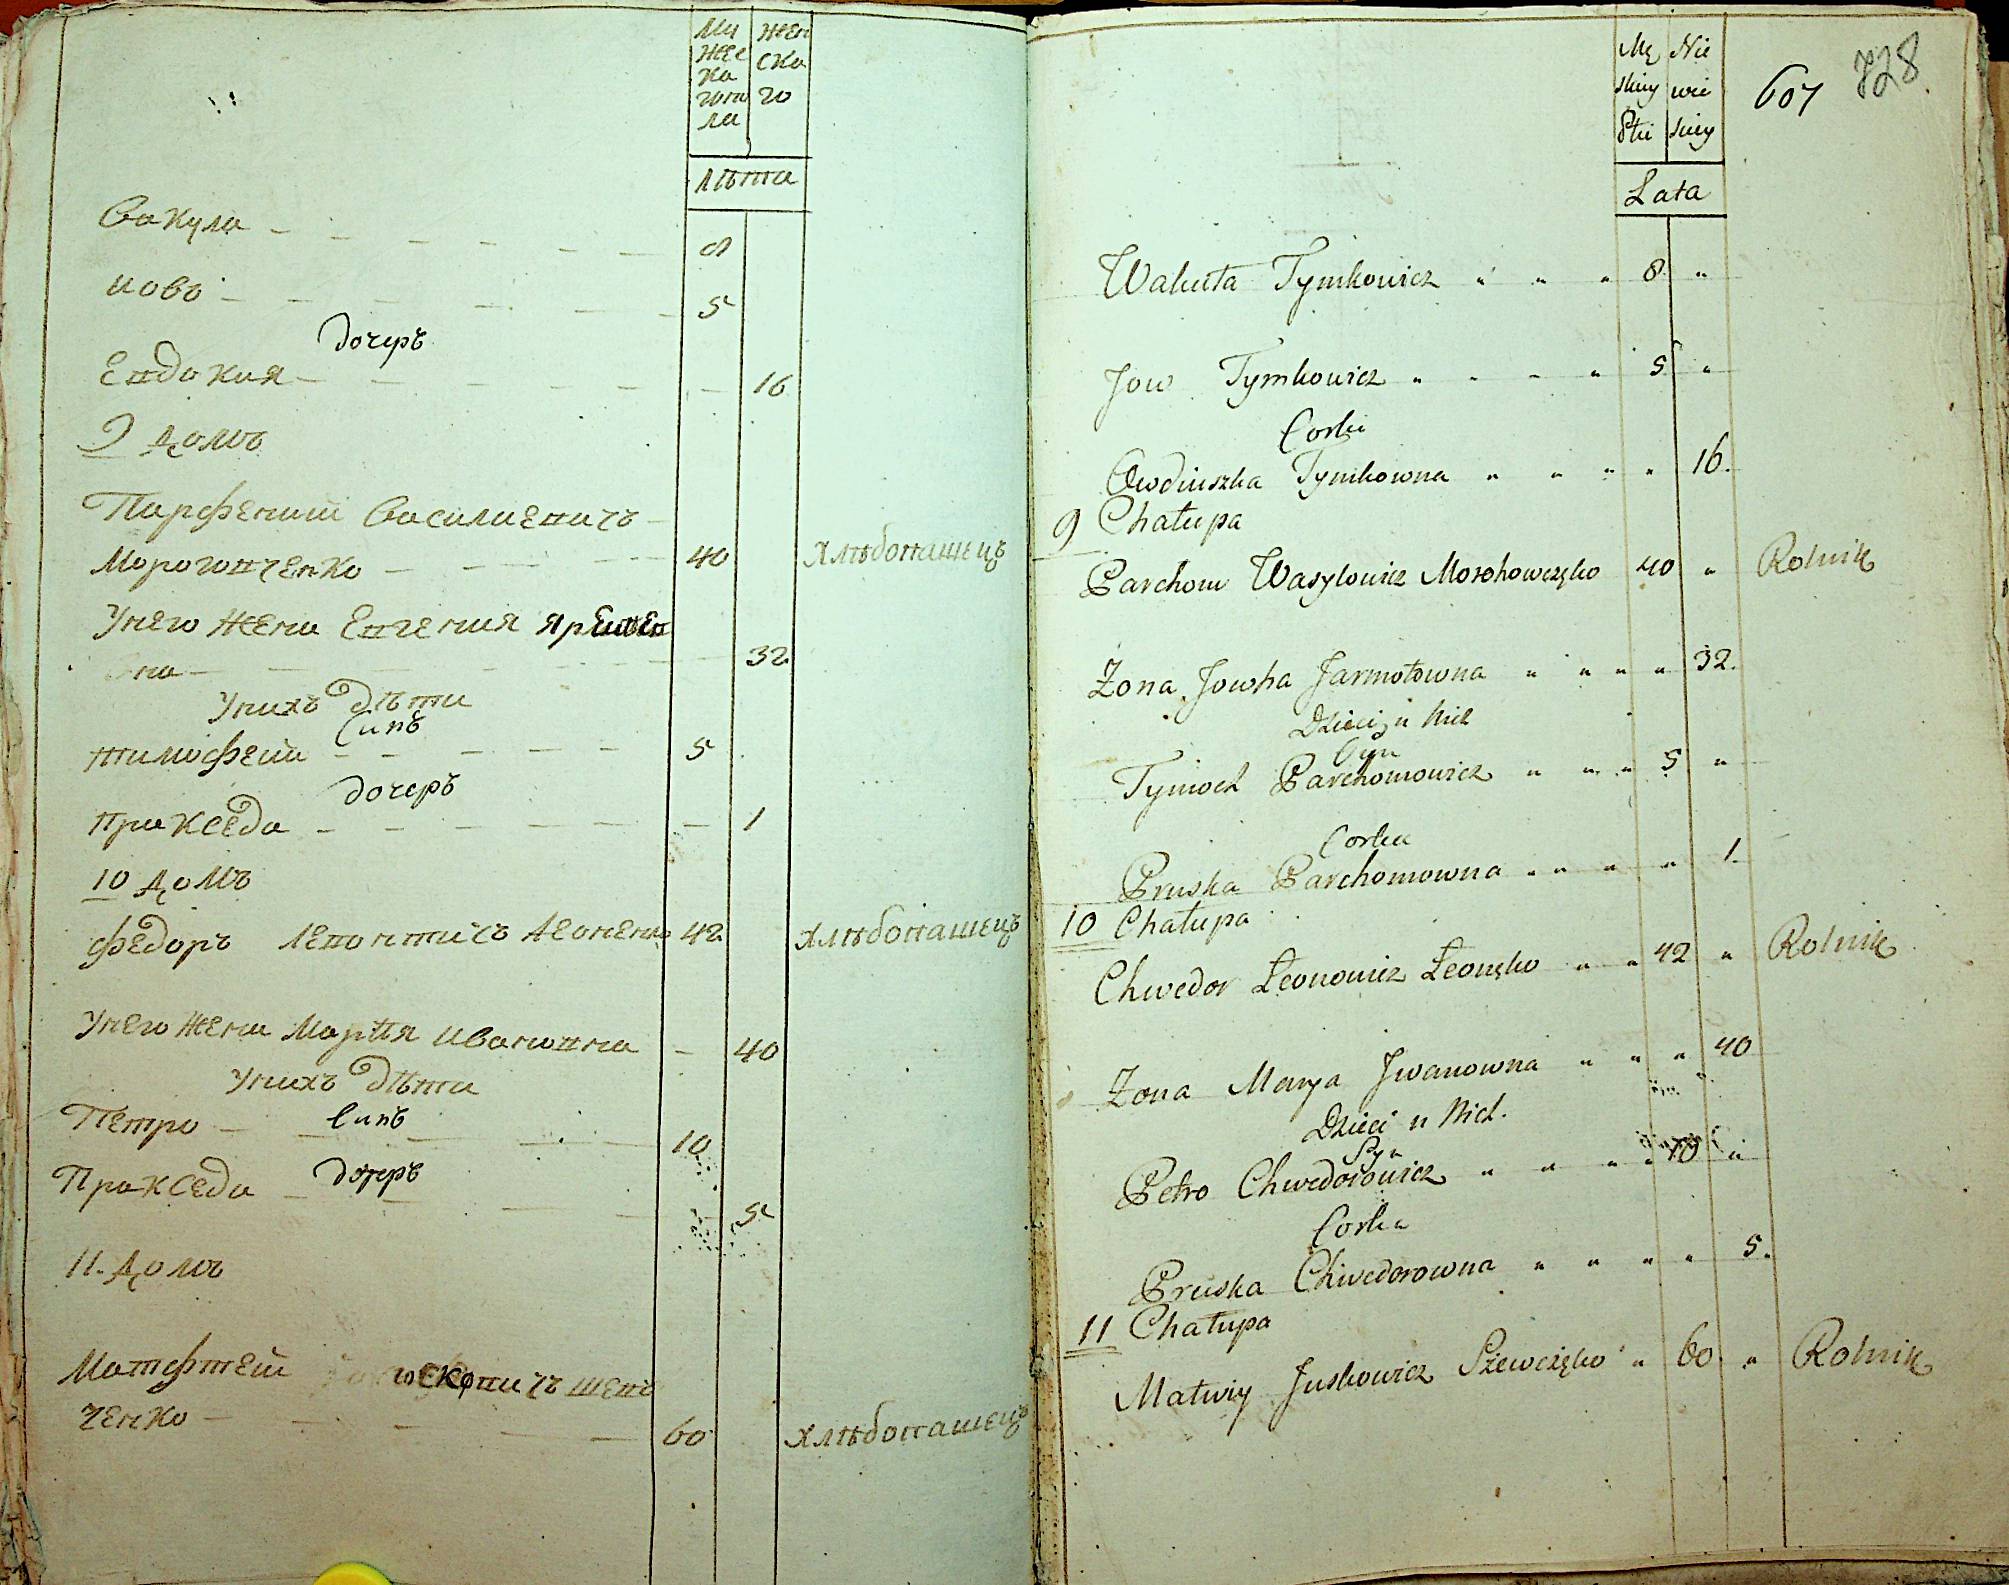 Му жен
жес ска
ка го
гопо
ла
лѣта
Вакула 8
Иовъ 5
дочеръ
Евдокия 16
9 домъ
Парфений Василиевичъ
Мороговченко 40 хлѣбопашецъ
У него жена Евгения Яремов
на 32
У нихъ дѣти
Синъ
Тимофей 5
дочеръ
Пракседа 1
10 домъ
Федоръ Леонтичъ Леоненко 42 хлѣбопашецъ
У него жена Мария Ивановна 40
У нихъ дѣти
Петро Синъ 10
Пракседа дочеръ 5
11. домъ
Матфей шев
ченко 60 хлѣбопашецъ
Mę Nie
skiey wie
Płci skiey
607 728
Lata
Wakuła Tymkowicz 8
Jow Tymkowicz 5
Corki
Owdiuszka Tymkowna 16.
9 Chałupa
Parchom Wasylowicz Morohowczęko 40 Rolnik
Zona Jowha Jarmołowna 32.
Dzieci u Nich
Syn
Tymoch Parchomowicz 5
Corka
Pruska Parchomowna 1.
10 Chałupa
Chwedor Leonowicz Leonęko 42 Rolnik
Zona Marya Jwanowna 40
Dzieci u Nich.
Syn
Petro Chwedorowicz 10
Corka
Pruska Chwedorowna 5.
11 Chałupa
Matwiy Juskowicz Szewczęko 60 Rolnik